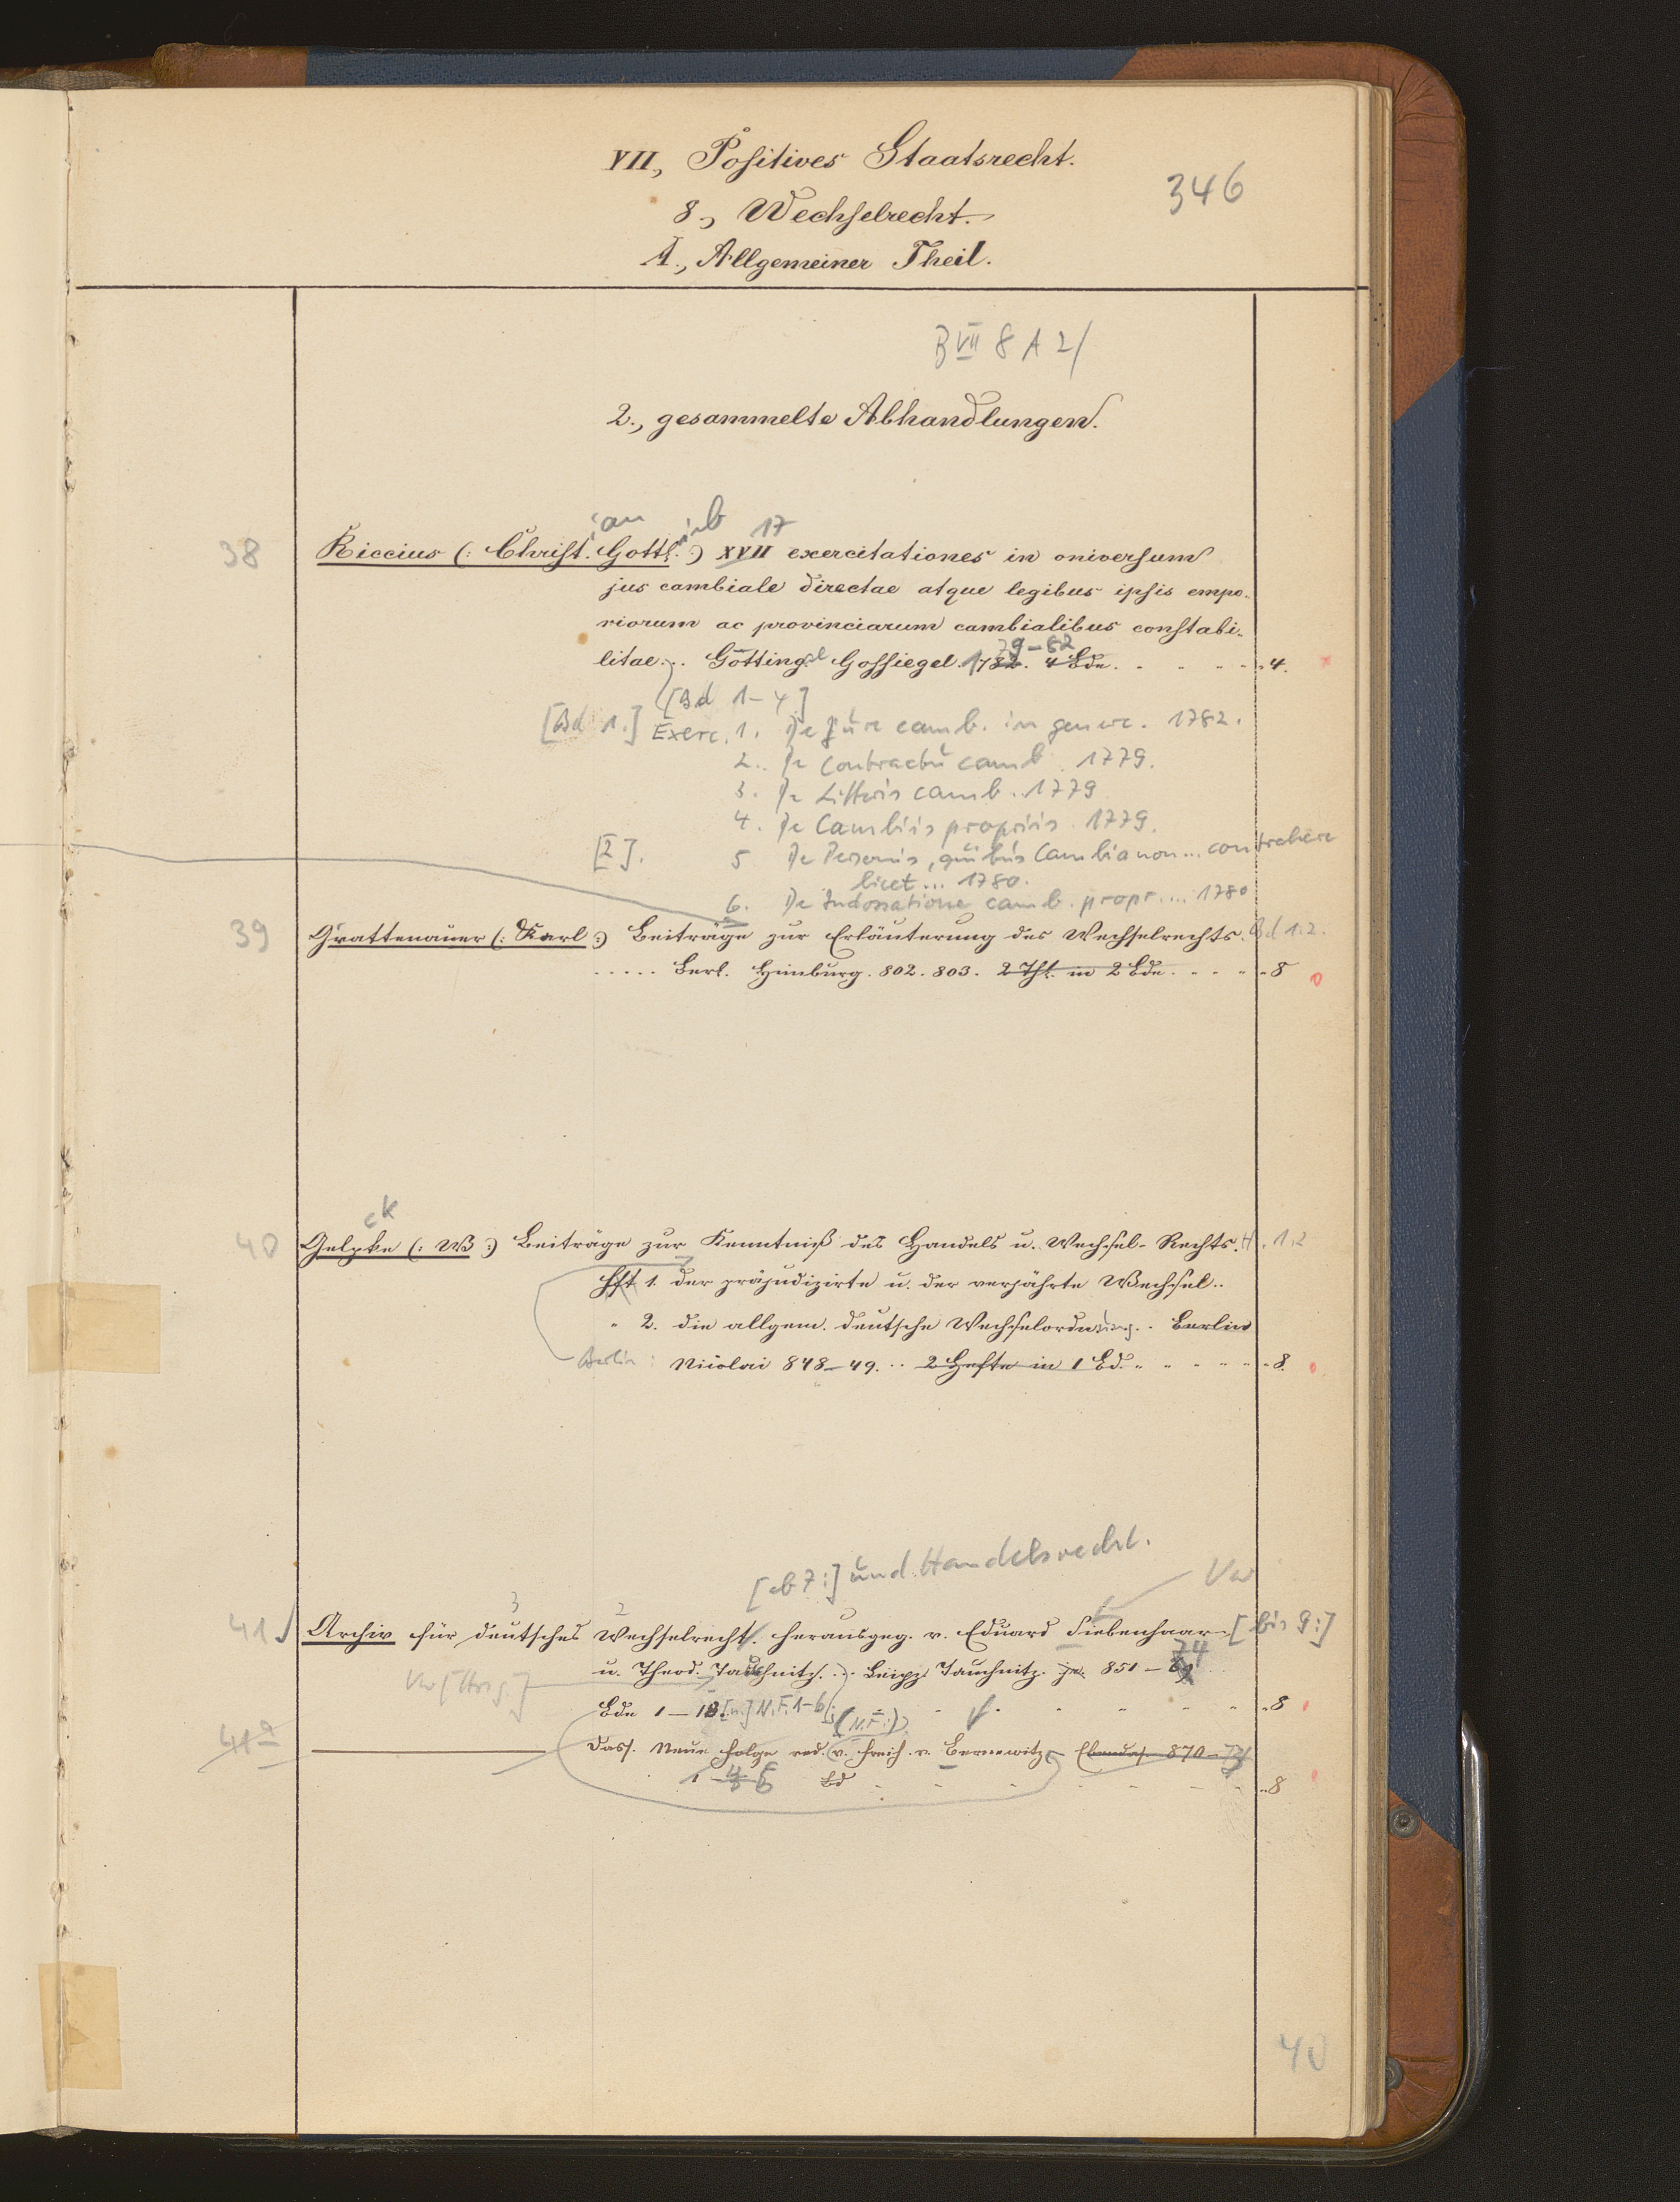 VII, Positives Staatsrecht.
346
8., Wechselrecht.
A., Allgemeiner Theil.
B VII 8 A 2/
2., gesammelte Abhandlungen.
ian ieb 17
38 Riccius (: Christ. Gottl. :) XVII exercitationes in universum
jus cambiale directae atque legibus ipsis empo-
riorum ac provinciarum cambialibus constabi-
79-82
litae... Götting. Gossiegel. 1782. 4 Bde. 4.
[Bd 1-4]
[Bd 1.] Exerc. 1. De jure camb. in genere. 1782.
2. De Contractu camb. 1779.
3. De Litteris camb. 1779
4. De Cambiis propriis. 1779.
[2]. 5 De Personis, quibus Cambia non... contrahere
licet... 1780.
6. De Indossatione camb. propr.... 1780
39 Grattenauer (: Karl :) Beiträge zur Erläuterung des Wechselrechts. Bd 1.2.
..... Berl. Himburg. 802. 803. 2 Thl. in 2 Bde. 8
ck
40 Gelpke (: W :) Beiträge zur Kenntniß des Handels u. Wechsel-Rechts. H. 1.2
Hft 1. der präjudizirte u. der verjährte Wechsel..
" 2. die allgem. deutsche Wechselordnung.. Berlin
Berlin: Nicolai 848-49... 2 Hefte in 1 Bd. 8.
[ab 7:] und Handelsrecht.
Vw
3 2
41 Archiv für deutsches Wechselrecht. herausgeg. v. Eduard Siebenhaar [bis 9:]
74
Vw [Hrsg.] u. Theod. Tauchnitz... Leipz. Tauchnitz. 851-69
Bde 1-18. [u.] N.F. 1-6 8
(N.F.:)
41a Dass. Neue Folge red. v. Freih. v. Bernewitz. Ebendas. 870-
1 - Bd 8
40